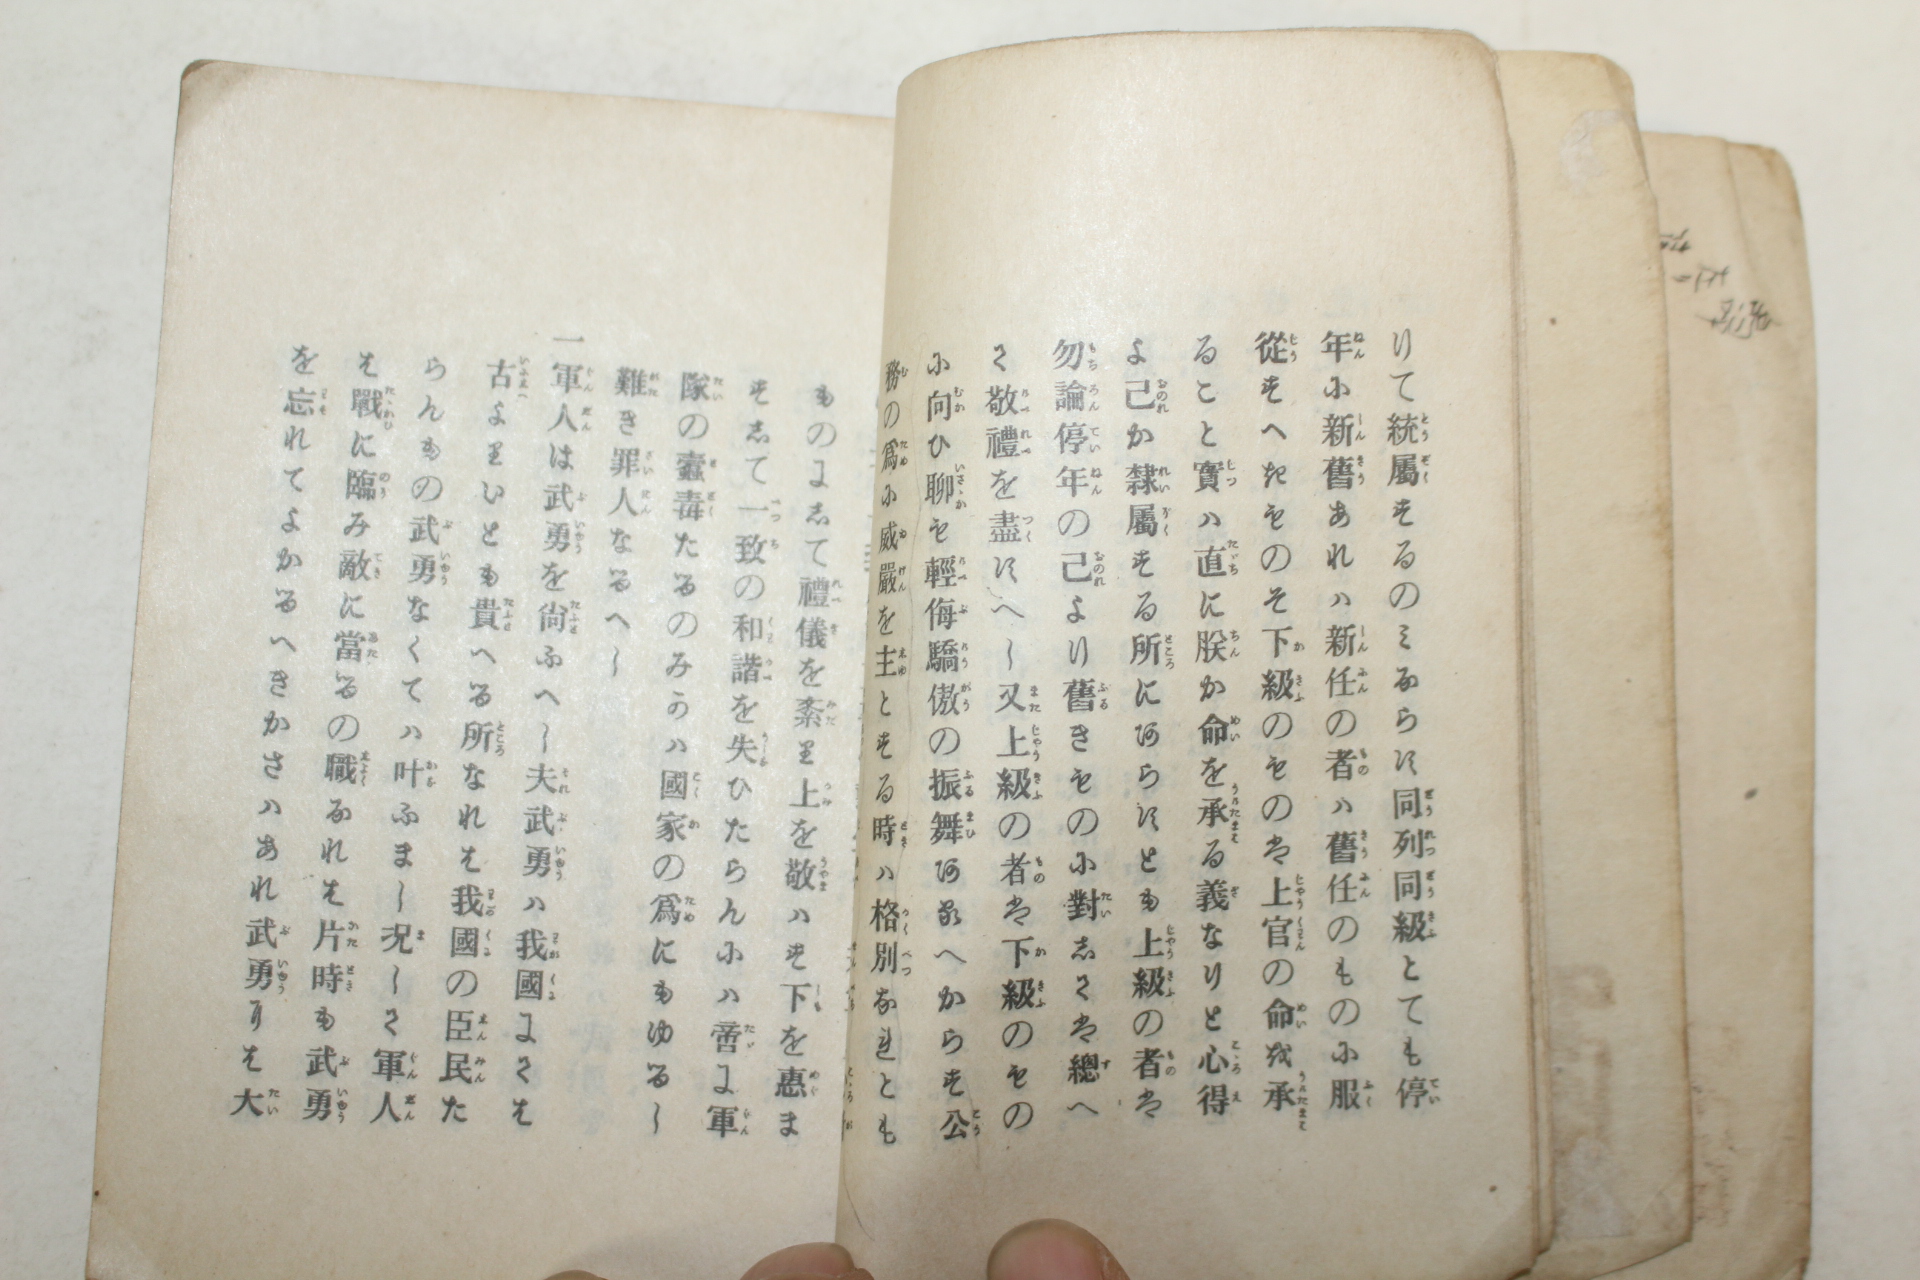 りて統屬するのみならす同列同級とても停
年に新舊あれハ新任の者ハ舊任のものに服
從すへきものそ下級のものは上官の命を承
ること實ハ直に朕か命を承る義なりと心得
よ己か隸屬する所にあらすとも上級の者は
勿論停年の己より舊きものに對しては總へ
て敬禮を盡すへし又上級の者は下級のもの
に向ひ聊も輕侮驕傲の振舞あるへからす公
務の爲に威嚴を主とする時ハ格別なれとも
ものにして禮儀を紊り上を敬ハす下を惠ま
すして一致の和諧を失ひたらんにハ啻に軍
隊の蠹毒たるのみかハ國家の爲にもゆるし
難き罪人なるへし
一軍人は武勇を尚ふへし夫武勇ハ我國にては
古よりいとも貴へる所なれは我國の臣民た
らんもの武勇なくてハ叶ふまし況して軍人
は戰に臨み敵に當るの職なれは片時も武勇
を忘れてよかるへきかさハあれ武勇には大